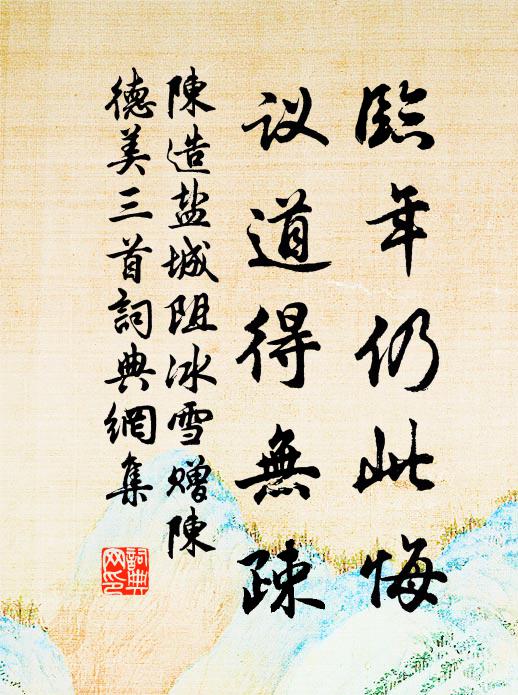 臨年仍此悔
议道得無疎
陳造盐城阻冰雪赠陳
德美三首詞典網集
詞典
网印